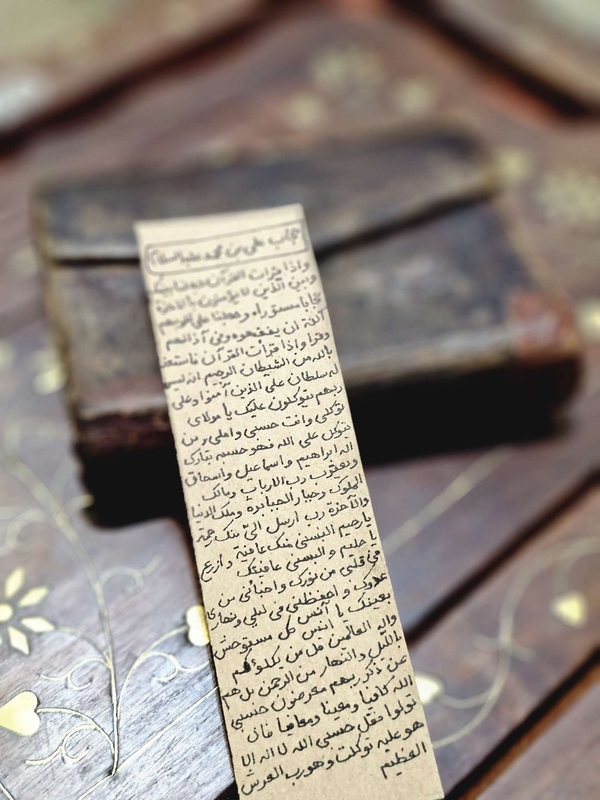 حجاب علي بن محمد عليهما السلام
واذا قرات القرآن جعلنا بينك
وبين الذين لا يؤمنون بالاخرة
حجابا مستورا وجعلنا على قلوبهم
اكنة ان يفقهوه وفي آذانهم
وقرا واذا قرأت القرآن فاستعذ
بالله من الشيطان الرجيم انه ليس
له سلطان على الذين آمنوا وعلى
ربهم يتوكلون عليك يا مولاي
توكلي وانت حسبي واملي ومن
يتوكل على الله فهو حسبه تبارك
اله ابراهيم واسماعيل واسحاق
ويعقوب رب الارباب ومالك
الملوك وجبار الجبابرة وملك الدنيا
والآخرة رب ارسل الي منك رحمة
يا رحيم البسني منك عافية وازرع
يا حليم و البسني عافيتك
في قلبي من نورك واخبأني من
عدوك واحفظني في ليلي ونهاري
بعينك يا انس كل مستوحش
واله العالمين قل من يكلؤكم
بالليل والنهار من الرحمن بل هم
عن ذكر ربهم معرضون حسبي
الله كافيا ومعينا ومعافيا فان
تولوا فقل حسبي الله لا اله الا
هو عليه توكلت وهو رب العرش
العظيم